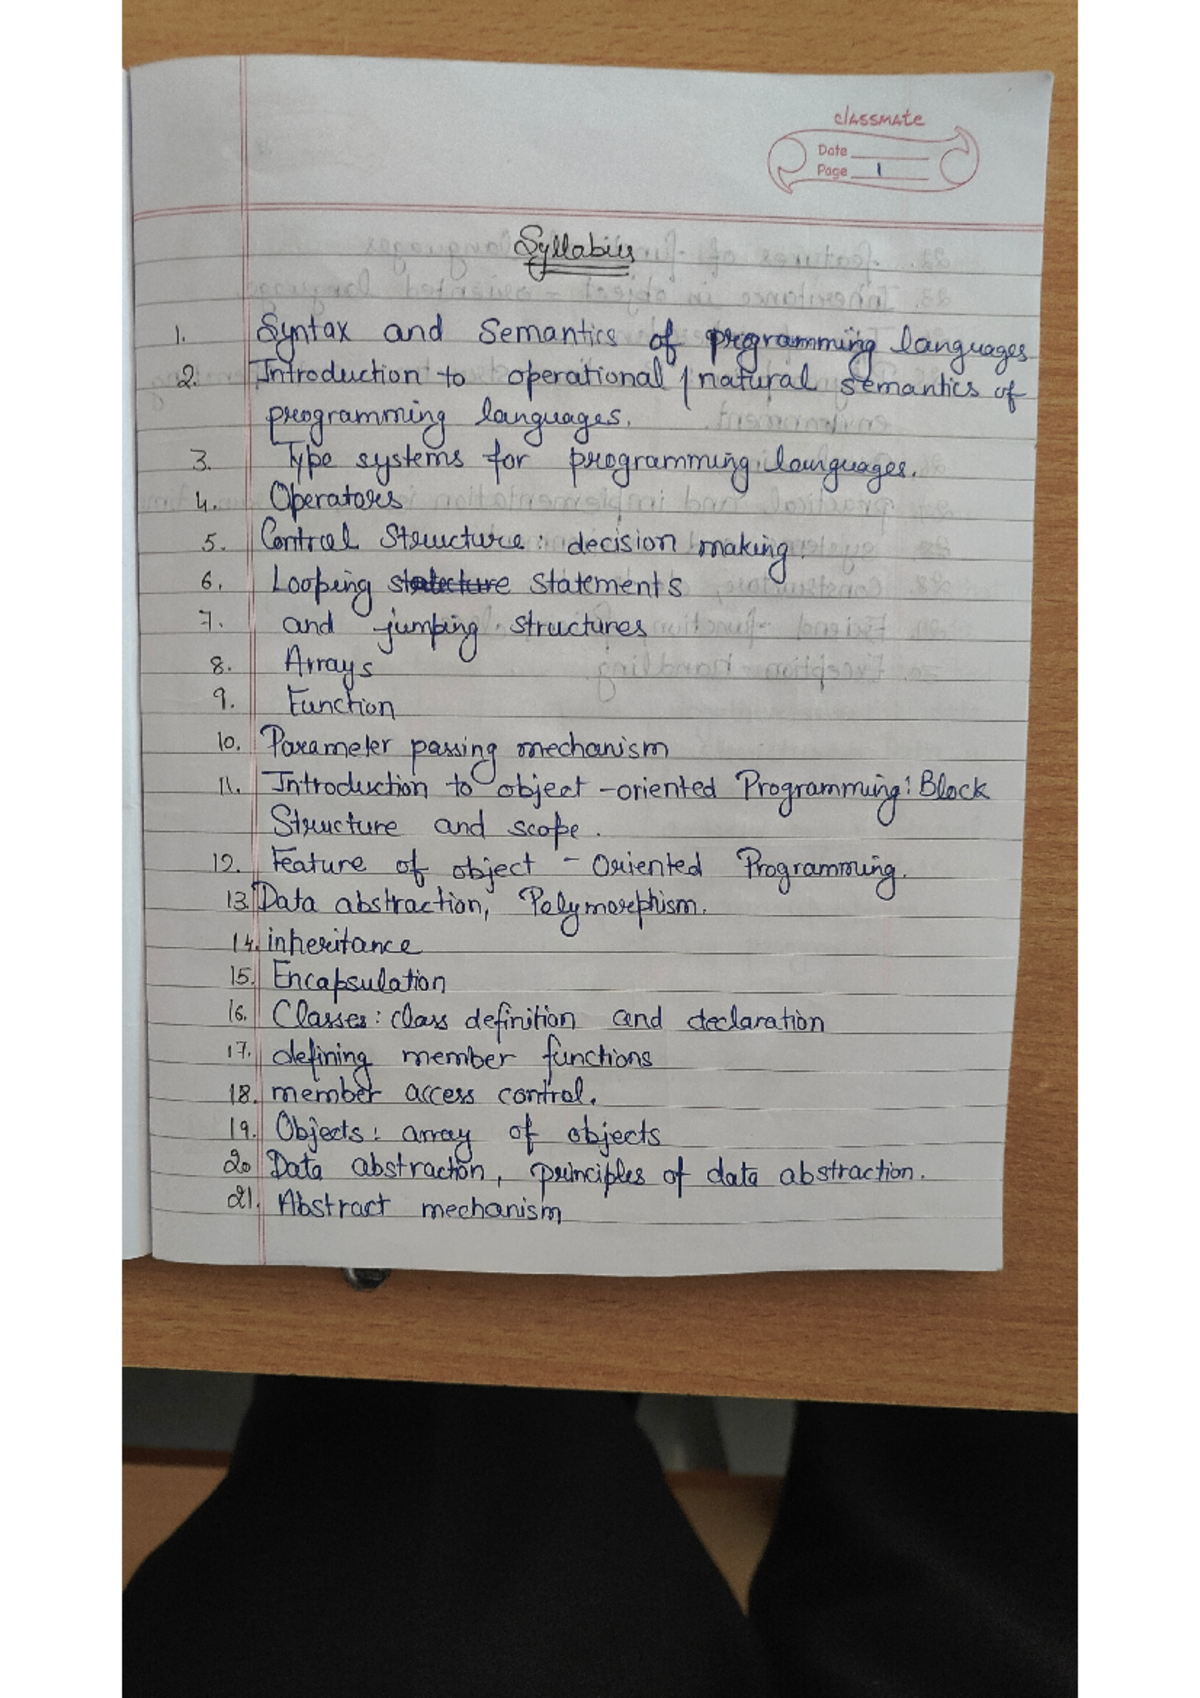 classmate
Date
Page 1
Syllabus
1. Syntax and Semantics of programming languages
2. Introduction to operational / natural semantics of
programming languages.
3. Type systems for programming languages.
4. Operators
5. Control Structure: decision making.
6. Looping statements
7. and jumping structures
8. Arrays
9. Function
10. Parameter passing mechanism
11. Introduction to object-oriented Programming: Block
Structure and scope.
12. Feature of object - Oriented Programming.
13. Data abstraction, Polymorphism.
14. inheritance
15. Encapsulation
16. Classes: class definition and declaration
17. defining member functions
18. member access control.
19. Objects: array of objects
20 Data abstraction, principles of data abstraction.
21. Abstract mechanism